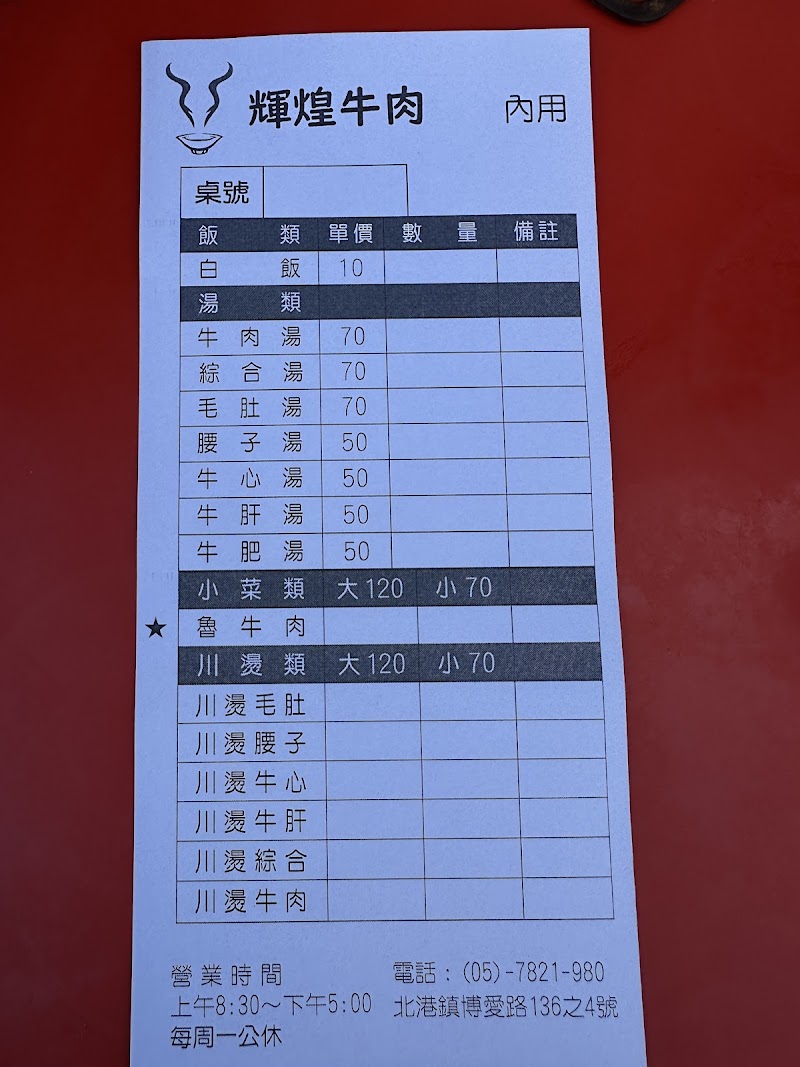 輝煌牛肉 內用
桌號
飯類 單價 數量 備註
白飯 10
湯類
牛肉湯 70
綜合湯 70
毛肚湯 70
腰子湯 50
牛心湯 50
牛肝湯 50
牛肥湯 50
小菜類 大120 小70
★ 魯牛肉
川燙類 大120 小70
川燙毛肚
川燙腰子
川燙牛心
川燙牛肝
川燙綜合
川燙牛肉
營業時間 電話：(05)-7821-980
上午8:30～下午5:00 北港鎮博愛路136之4號
每周一公休